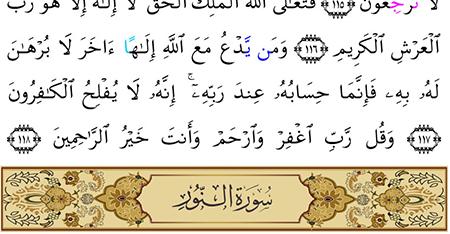 لَا تُرْجَعُونَ ﴿١١٥﴾ فَتَعَالَى اللَّهُ الْمَلِكُ الْحَقُّ لَا إِلَٰهَ إِلَّا هُوَ رَبُّ
الْعَرْشِ الْكَرِيمِ ﴿١١٦﴾ وَمَن يَدْعُ مَعَ اللَّهِ إِلَٰهًا ءَاخَرَ لَا بُرْهَٰنَ
لَهُۥ بِهِۦ فَإِنَّمَا حِسَابُهُۥ عِندَ رَبِّهِۦٓ ۚ إِنَّهُۥ لَا يُفْلِحُ الْكَٰفِرُونَ
﴿١١٧﴾ وَقُل رَّبِّ اغْفِرْ وَارْحَمْ وَأَنتَ خَيْرُ الرَّٰحِمِينَ ﴿١١٨﴾
سُورَةُ النُّورِ